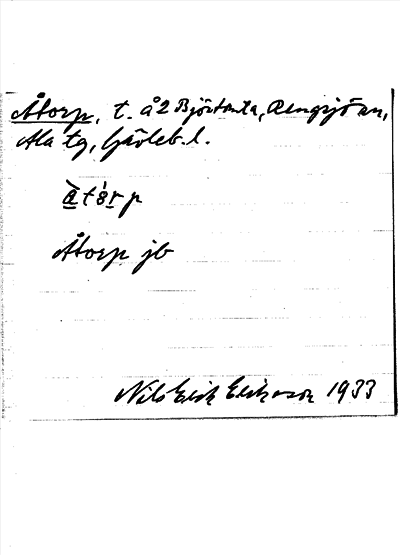 Åtorp, t. å 2 Björtomta, Rengsjö sn,
Ala tg, Gävleb. l.
àtórp
Åtorp jb
Nils Erik Eriksson 1933